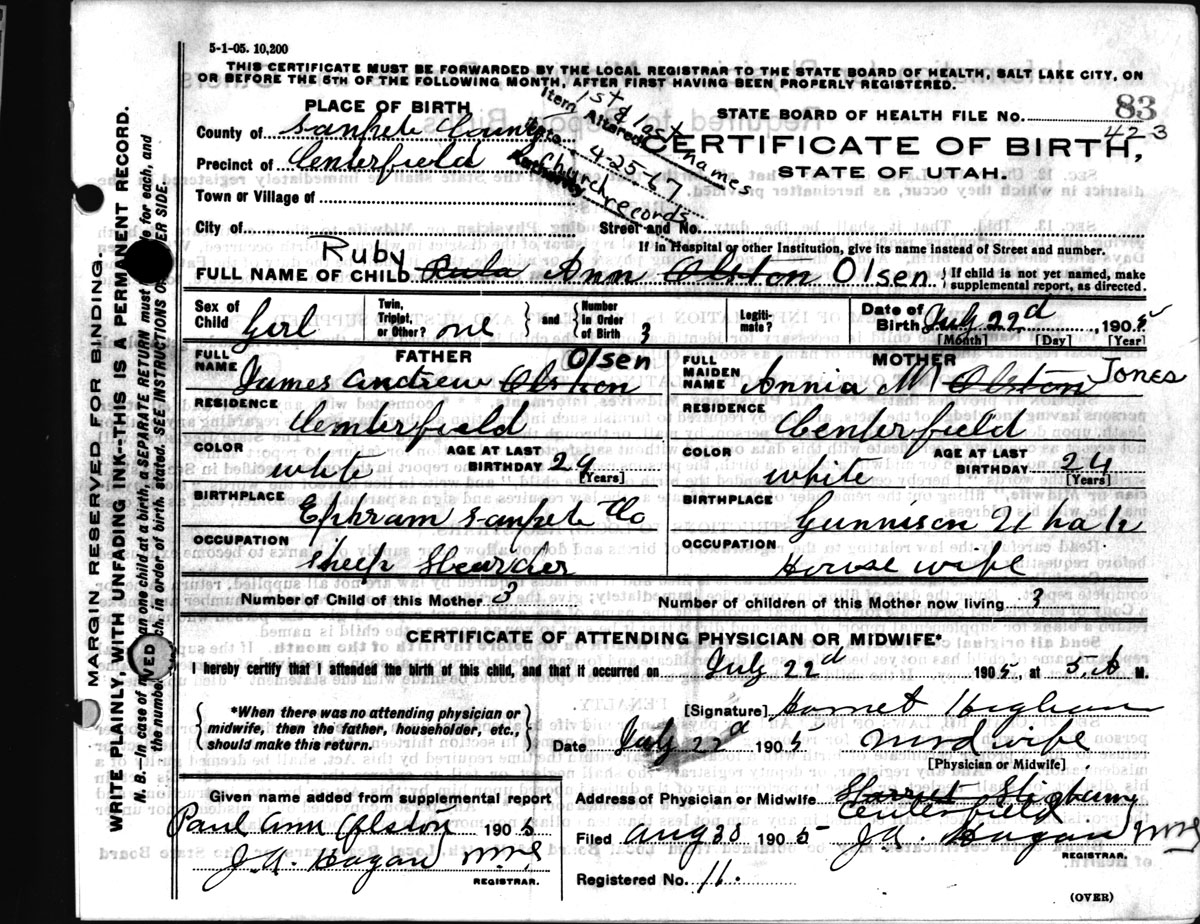 5-1-05. 10,200
THIS CERTIFICATE MUST BE FORWARDED BY THE LOCAL REGISTRAR TO THE STATE BOARD OF HEALTH, SALT LAKE CITY, ON
OR BEFORE THE 5TH OF THE FOLLOWING MONTH, AFTER FIRST HAVING BEEN PROPERLY REGISTERED.
PLACE OF BIRTH
STATE BOARD OF HEALTH FILE NO. 83
423
County of Sanpete County
Precinct of Centerfield
Town or Village of
City of
Item Altered 1st & last names
Date 4-25-67
Authority Church records
CERTIFICATE OF BIRTH,
STATE OF UTAH.
Street and No.
If in Hospital or other Institution, give its name instead of Street and number.
Ruby
FULL NAME OF CHILD Ann Olston Olsen
If child is not yet named, make
supplemental report, as directed.
Sex of Child Girl
Twin, Triplet, or Other? one and Number in Order of Birth 3
Legitimate?
Date of Birth July 22d, 1905
[Month] [Day] [Year]
FATHER
FULL NAME James Andrew Olston Olsen
MOTHER
FULL MAIDEN NAME Annia M Olston Jones
RESIDENCE Cemterfield
RESIDENCE Centerfield
COLOR white AGE AT LAST BIRTHDAY 29 [Years]
COLOR white AGE AT LAST BIRTHDAY 24 [Years]
BIRTHPLACE Ephram Sanpete Co
BIRTHPLACE Gunnison Utah
OCCUPATION Sheep Shearher
OCCUPATION House wife
Number of Child of this Mother 3
Number of children of this Mother now living 3
CERTIFICATE OF ATTENDING PHYSICIAN OR MIDWIFE*
I hereby certify that I attended the birth of this child, and that it occurred on July 22d 1905, at M.
*When there was no attending physician or
midwife, then the father, householder, etc.,
should make this return.
[Signature]
Date July 22d 1905
midwife
[Physician or Midwife]
Given name added from supplemental report
Paul Ann Olston 1905
J.A. Hagan
REGISTRAR.
Address of Physician or Midwife
Centerfield
Filed Aug 28 1905 J.A. Hagan
REGISTRAR.
Registered No. 11.
(OVER)
MARGIN RESERVED FOR BINDING.
WRITE PLAINLY, WITH UNFADING INK--THIS IS A PERMANENT RECORD.
N. B.--In case of more than one child at a birth, a SEPARATE RETURN must be for each, and
the number of each, in order of birth, stated. SEE INSTRUCTIONS ON OTHER SIDE.